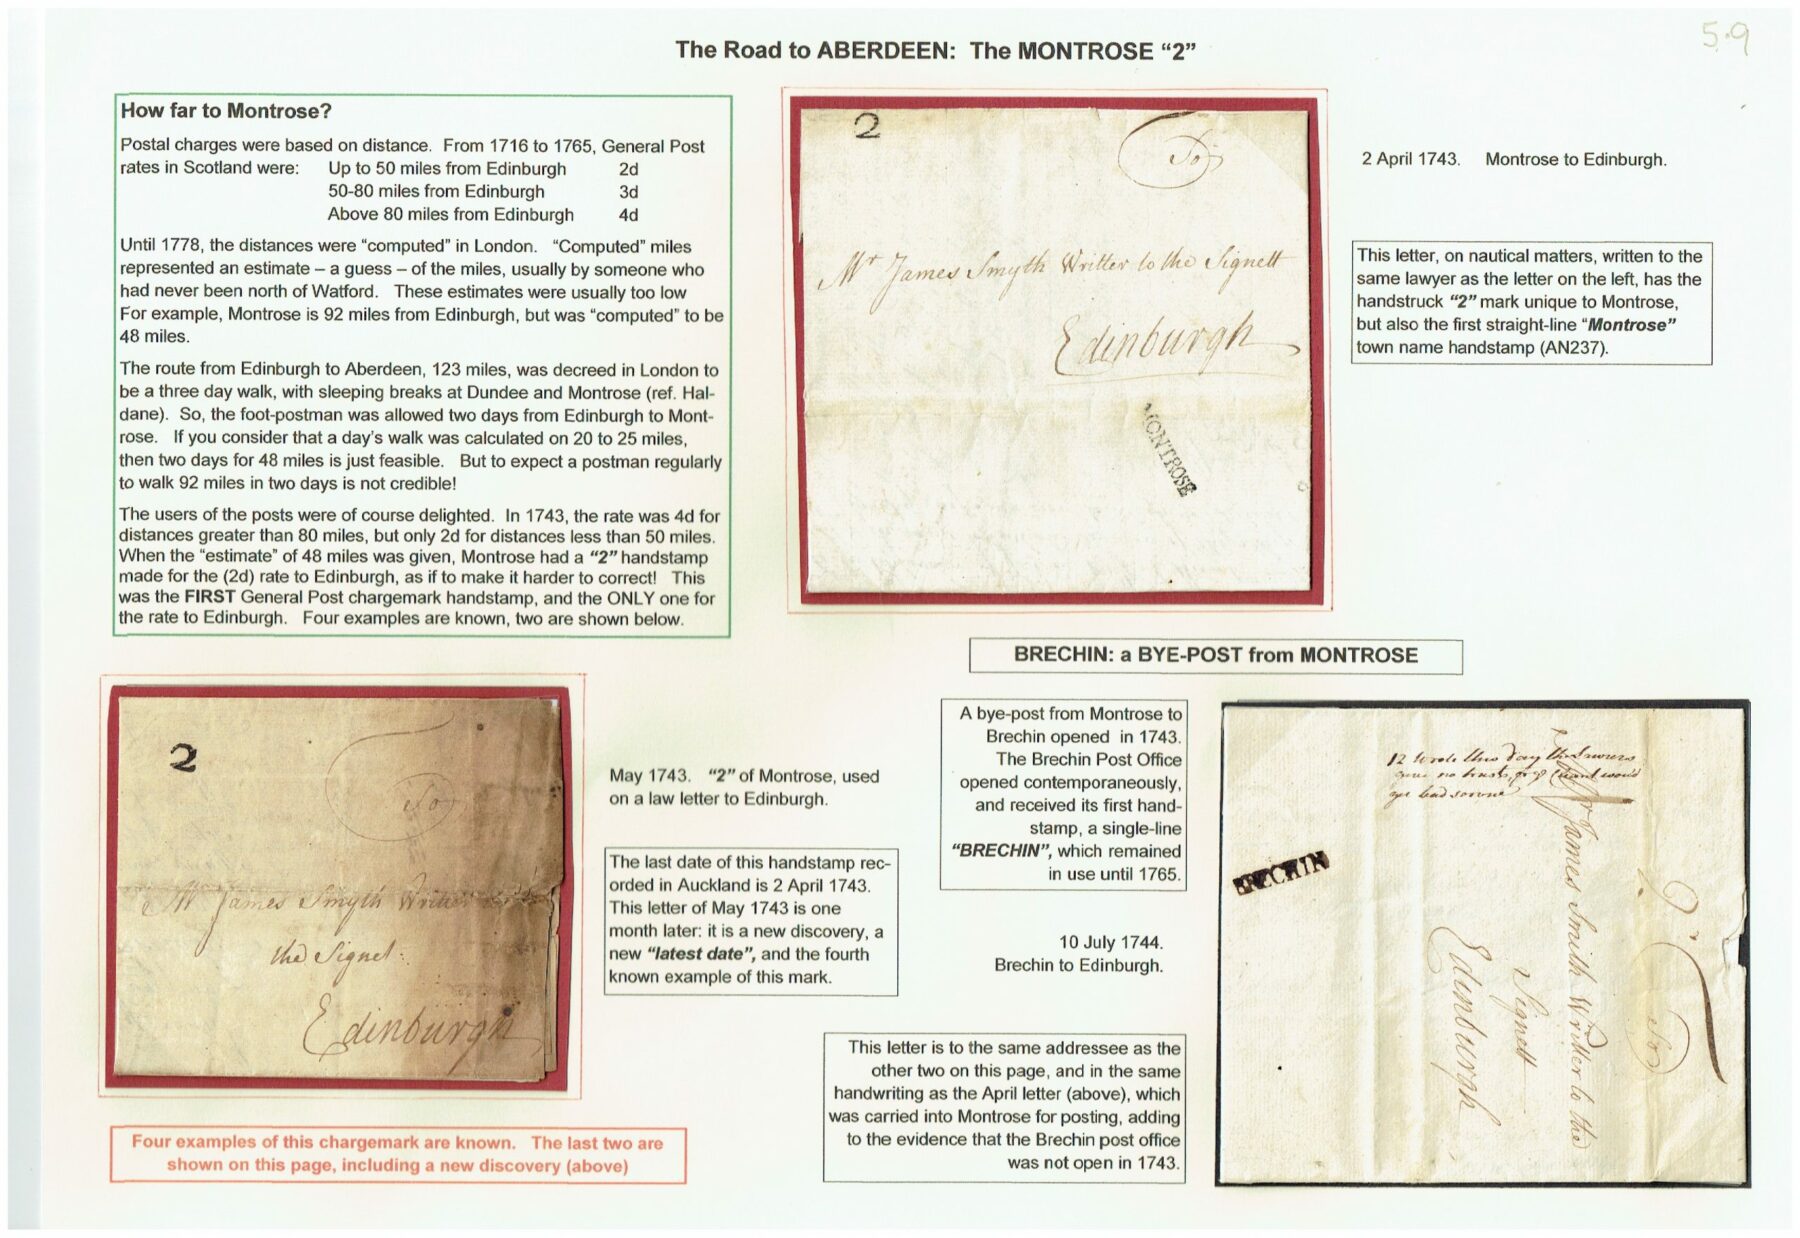 5.9
The Road to ABERDEEN: The MONTROSE “2”
How far to Montrose?
Postal charges were based on distance. From 1716 to 1765, General Post
rates in Scotland were: Up to 50 miles from Edinburgh 2d
50-80 miles from Edinburgh 3d
Above 80 miles from Edinburgh 4d
Until 1778, the distances were “computed” in London. “Computed” miles
represented an estimate – a guess – of the miles, usually by someone who
had never been north of Watford. These estimates were usually too low
For example, Montrose is 92 miles from Edinburgh, but was “computed” to be
48 miles.
The route from Edinburgh to Aberdeen, 123 miles, was decreed in London to
be a three day walk, with sleeping breaks at Dundee and Montrose (ref. Hal-
dane). So, the foot-postman was allowed two days from Edinburgh to Mont-
rose. If you consider that a day’s walk was calculated on 20 to 25 miles,
then two days for 48 miles is just feasible. But to expect a postman regularly
to walk 92 miles in two days is not credible!
The users of the posts were of course delighted. In 1743, the rate was 4d for
distances greater than 80 miles, but only 2d for distances less than 50 miles.
When the “estimate” of 48 miles was given, Montrose had a “2” handstamp
made for the (2d) rate to Edinburgh, as if to make it harder to correct! This
was the FIRST General Post chargemark handstamp, and the ONLY one for
the rate to Edinburgh. Four examples are known, two are shown below.
2
To
Mr James Smyth Writter to the Signett
Edinburgh
MONTROSE
2 April 1743. Montrose to Edinburgh.
This letter, on nautical matters, written to the
same lawyer as the letter on the left, has the
handstruck “2” mark unique to Montrose,
but also the first straight-line “Montrose”
town name handstamp (AN237).
2
To
Mr James Smyth Writter
the Signet
Edinburgh
May 1743. “2” of Montrose, used
on a law letter to Edinburgh.
The last date of this handstamp rec-
orded in Auckland is 2 April 1743.
This letter of May 1743 is one
month later: it is a new discovery, a
new “latest date”, and the fourth
known example of this mark.
Four examples of this chargemark are known. The last two are
shown on this page, including a new discovery (above)
BRECHIN: a BYE-POST from MONTROSE
A bye-post from Montrose to
Brechin opened in 1743.
The Brechin Post Office
opened contemporaneously,
and received its first hand-
stamp, a single-line
“BRECHIN”, which remained
in use until 1765.
10 July 1744.
Brechin to Edinburgh.
This letter is to the same addressee as the
other two on this page, and in the same
handwriting as the April letter (above), which
was carried into Montrose for posting, adding
to the evidence that the Brechin post office
was not open in 1743.
BRECHIN
To
Mr James Smith Writter to the
Signett
Edinburgh